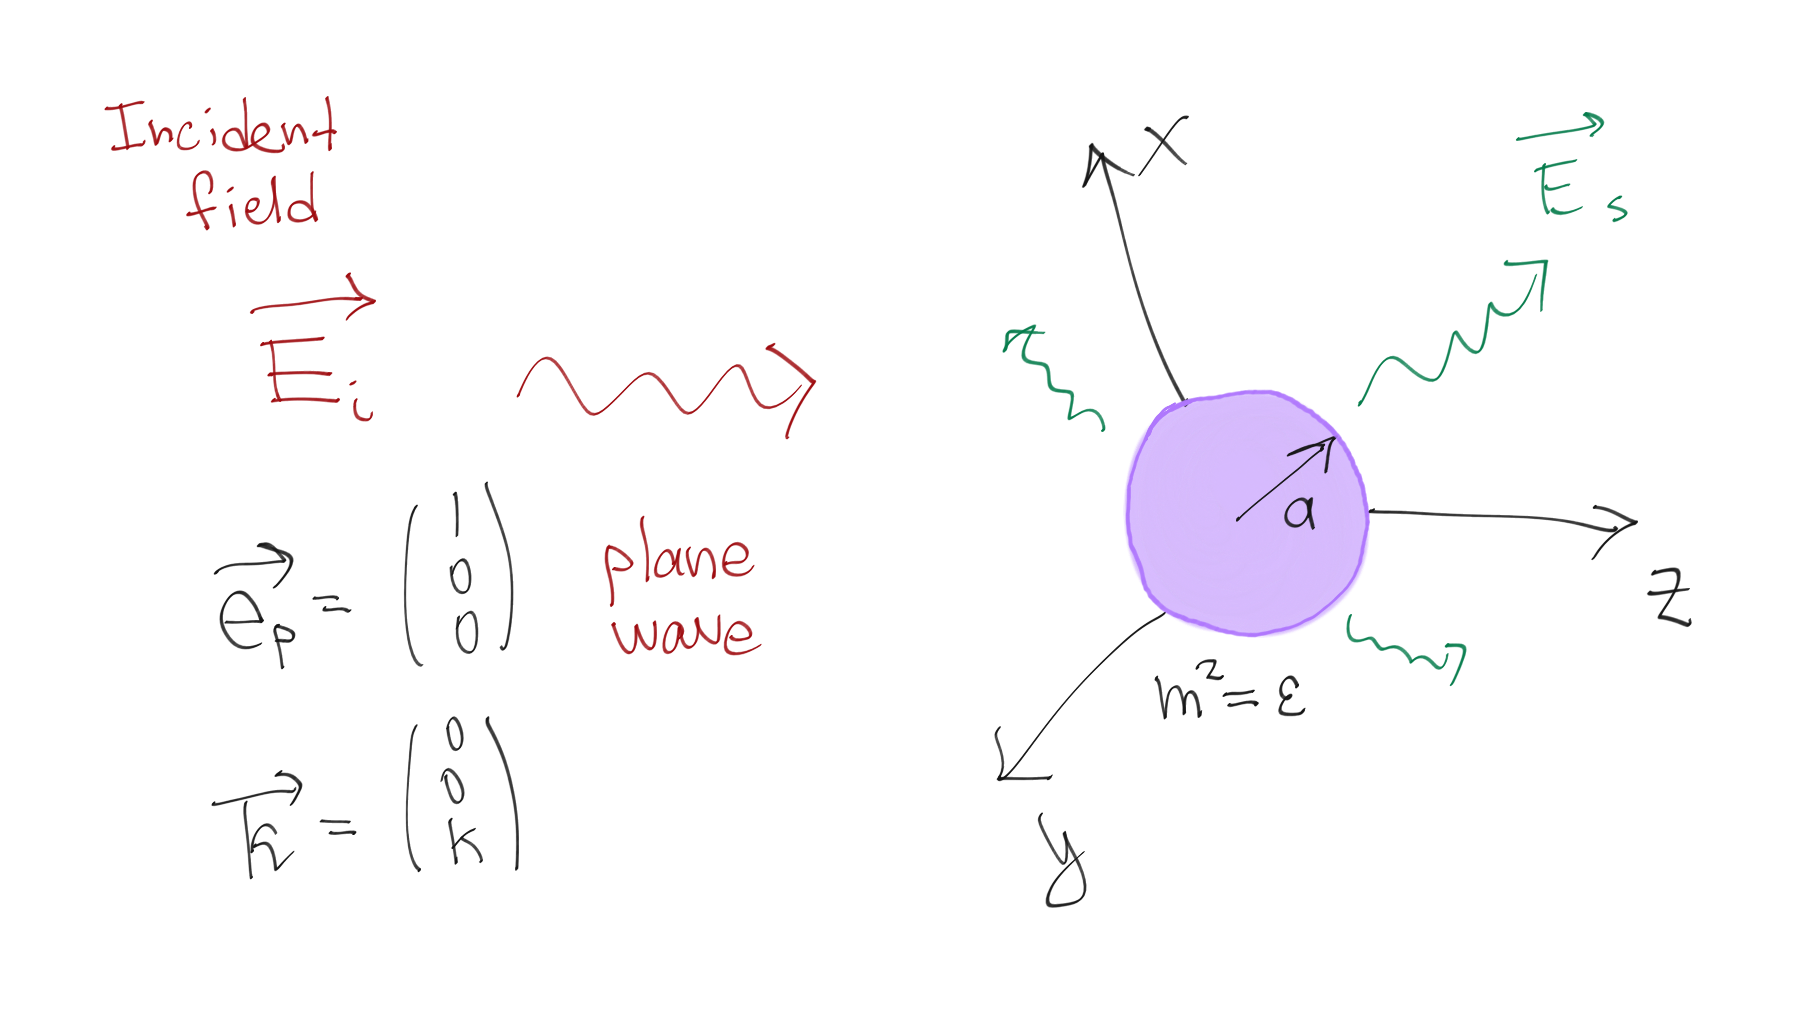 Incident
field
E⃗ᵢ
e⃗ₚ = (1 0 0)
plane
wave
k⃗ = (0 0 k)
x
E⃗ₛ
a
z
m² = ε
y